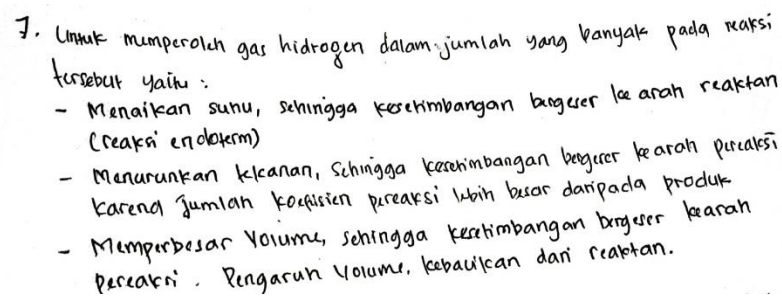 7. Untuk memperoleh gas hidrogen dalam jumlah yang banyak pada reaksi
tersebut yaitu :
- Menaikan suhu, sehingga kesetimbangan bergeser ke arah reaktan
(reaksi endoterm)
- Menurunkan tekanan, sehingga kesetimbangan bergeser ke arah pereaksi
karena jumlah koefisien pereaksi lebih besar daripada produk
- Memperbesar volume, sehingga kesetimbangan bergeser kearah
pereaksi. Pengaruh volume, kebalikan dari reaktan.